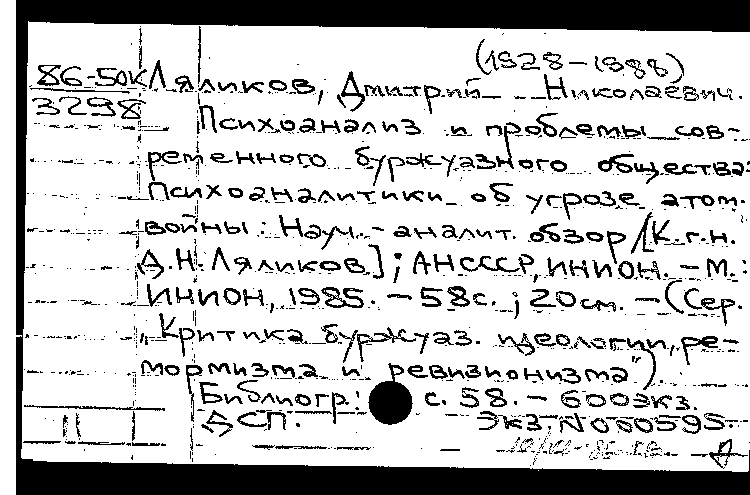 (1928-1988)
86-50к Ляликов, Дмитрий Николаевич.
3298
Психоанализ и проблемы сов-
ременного буржуазного общества:
Психоаналитики об угрозе атом.
войны: Науч.-аналит. обзор /[К.г.н.
Д.Н.Ляликов]; АН СССР, ИНИОН. - М.:
ИНИОН, 1985. - 58с.; 20см. - (Сер.
"Критика буржуаз. идеологии, ре-
формизма и ревизионизма").
Библиогр.: с. 58. - 600экз.
11 ДСП. Экз.N000595.